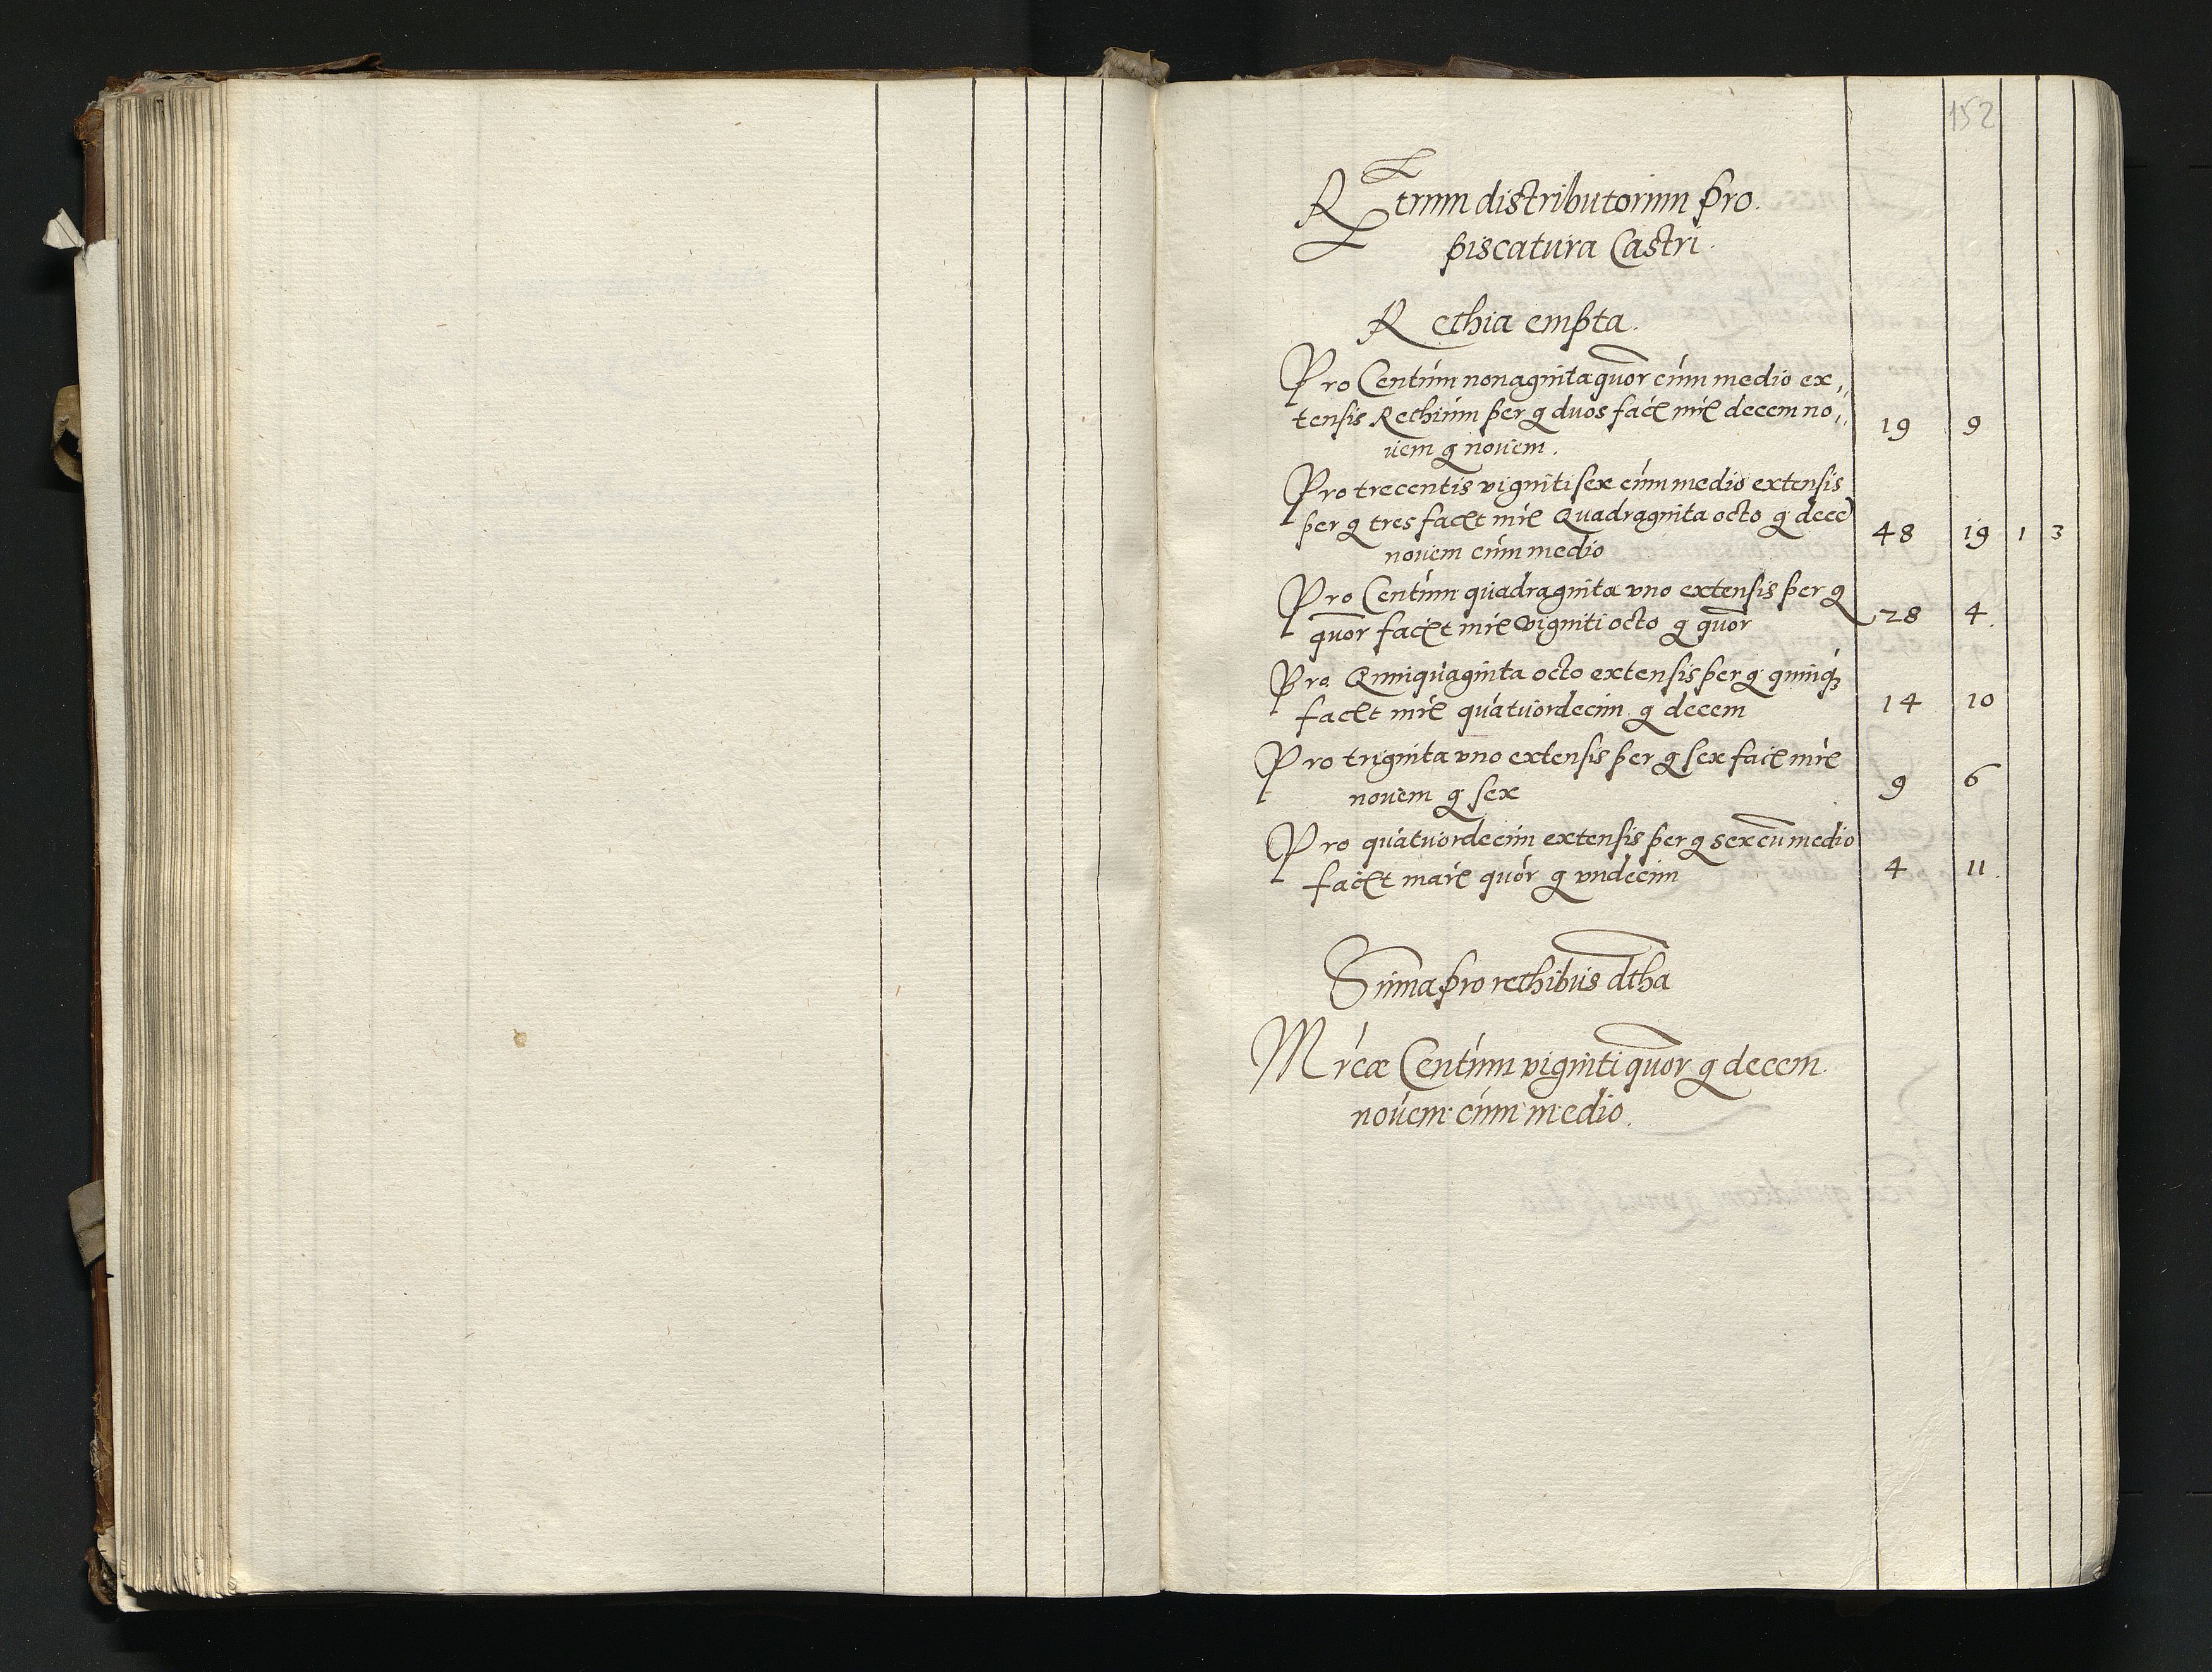 152
Rtrum distributorium pro.
piscatura Castri.
Rethia empta.
Pro Centum nonaginta quor cum medio ex,
tensis Rethium per g duos facit mrc decem no,, 19 9
uem g nouem.
Pro trecentis viginti sex cum medio extensis
per g tres facit mrc Quadraginta octo g dece 48 19 1 3
nouem cum medio
Pro Centum quadraginta vno extensis per g
quor facit mrc viginti octo g quor 28 4.
Pro Quinquaginta octo extensis per g quinq3
facit mrc quatuordecim g decem 14 10
Pro triginta vno extensis per g sex facit mrc
nouem g sex 9 6
Pro quatuordecim extensis per g sex cu medio
facit marc quor g vndecim 4 11.
Suma pro rethibus dtha
Mrcae Centum viginti quor g decem
nouem cum medio.